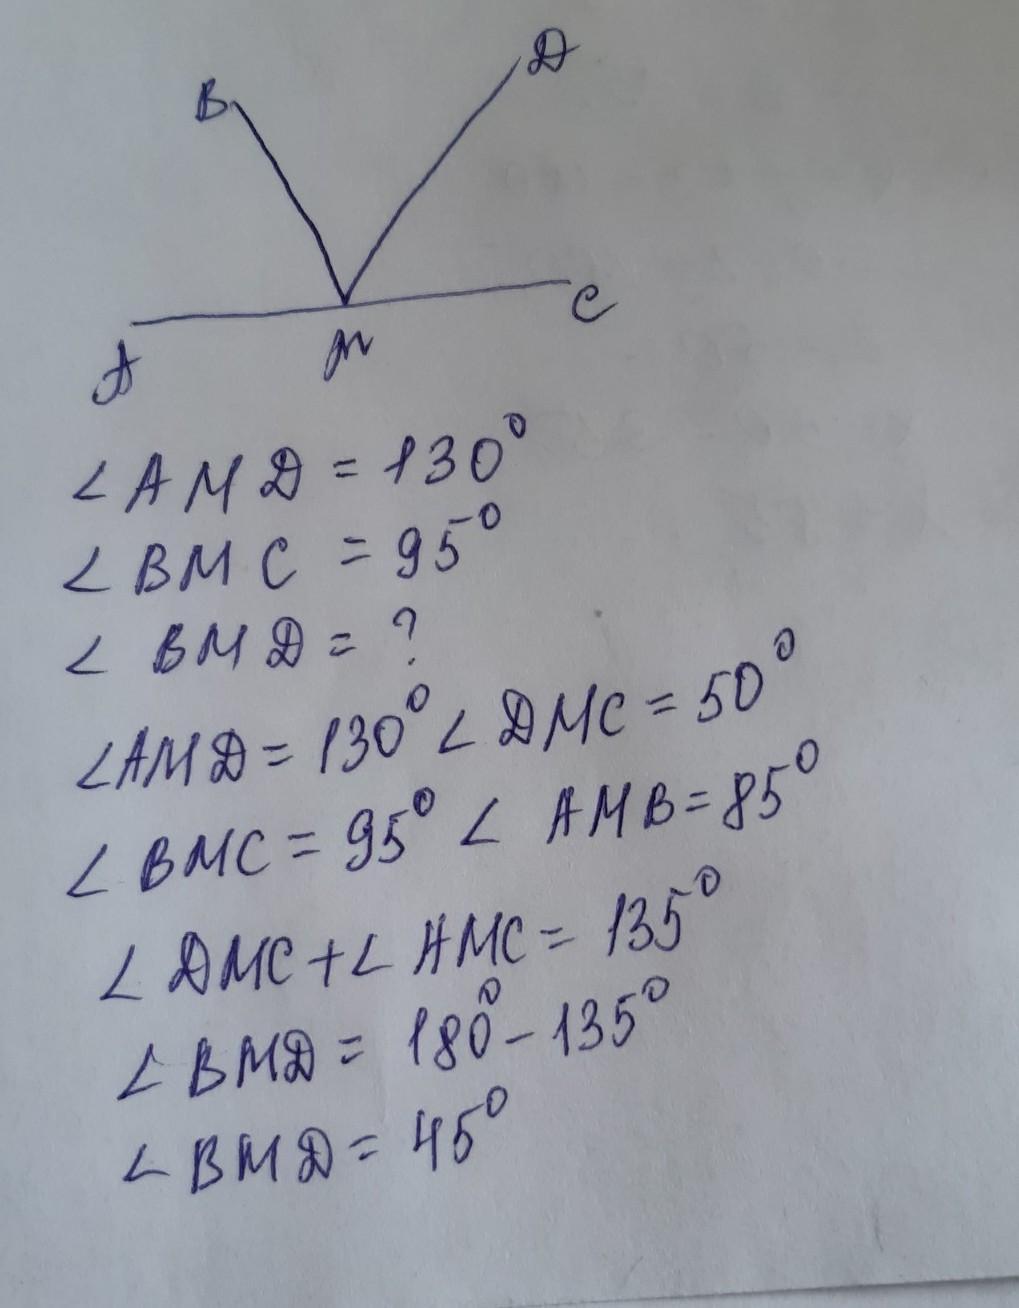 B D
A M C
∠AMD = 130°
∠BMC = 95°
∠ BMD = ?
∠AMD = 130° ∠ DMC = 50°
∠ BMC = 95° ∠ AMB = 85°
∠ DMC + ∠ AMC = 135°
∠ BMD = 180° - 135°
∠ BMD = 45°